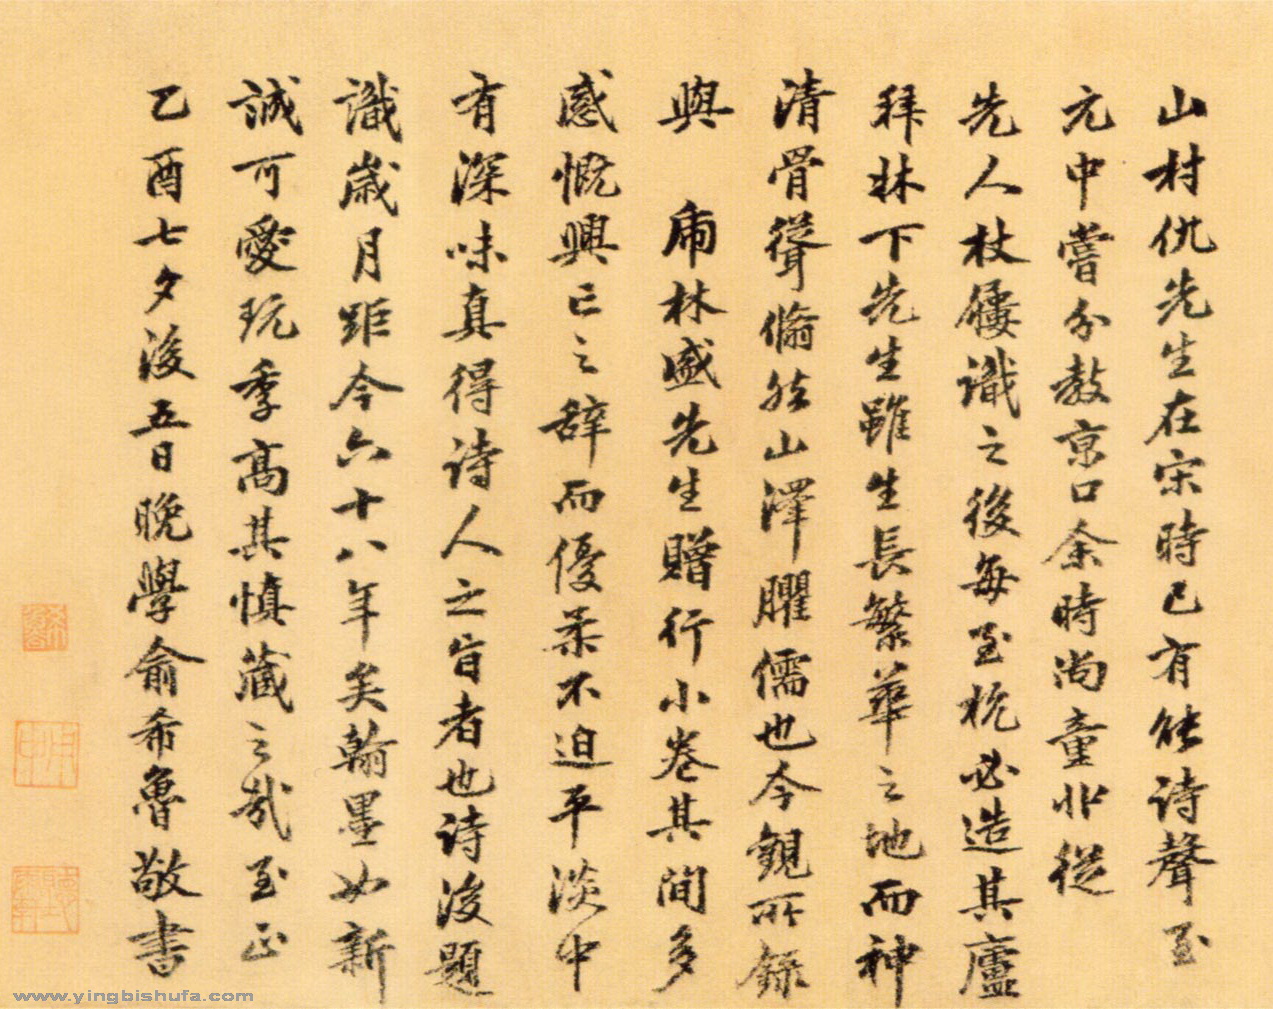 山村仇先生在宋時已有能詩聲至
元中嘗分教京口余時尚童丱從
先人杖屨識之後每至杭必造其廬
拜林下先生雖生長繁華之地而神
清骨聳翛然山澤臞儒也今觀所錄
與 虎林盛先生贈行小卷其間多
感慨興亡之辞而優柔不迫平淡中
有深味真得詩人之旨者也詩後題
識歲月距今六十八年矣翰墨如新
誠可愛玩季高其慎藏之哉至正
乙酉七夕後五日晚學俞希魯敬書
www.yingbishufa.com